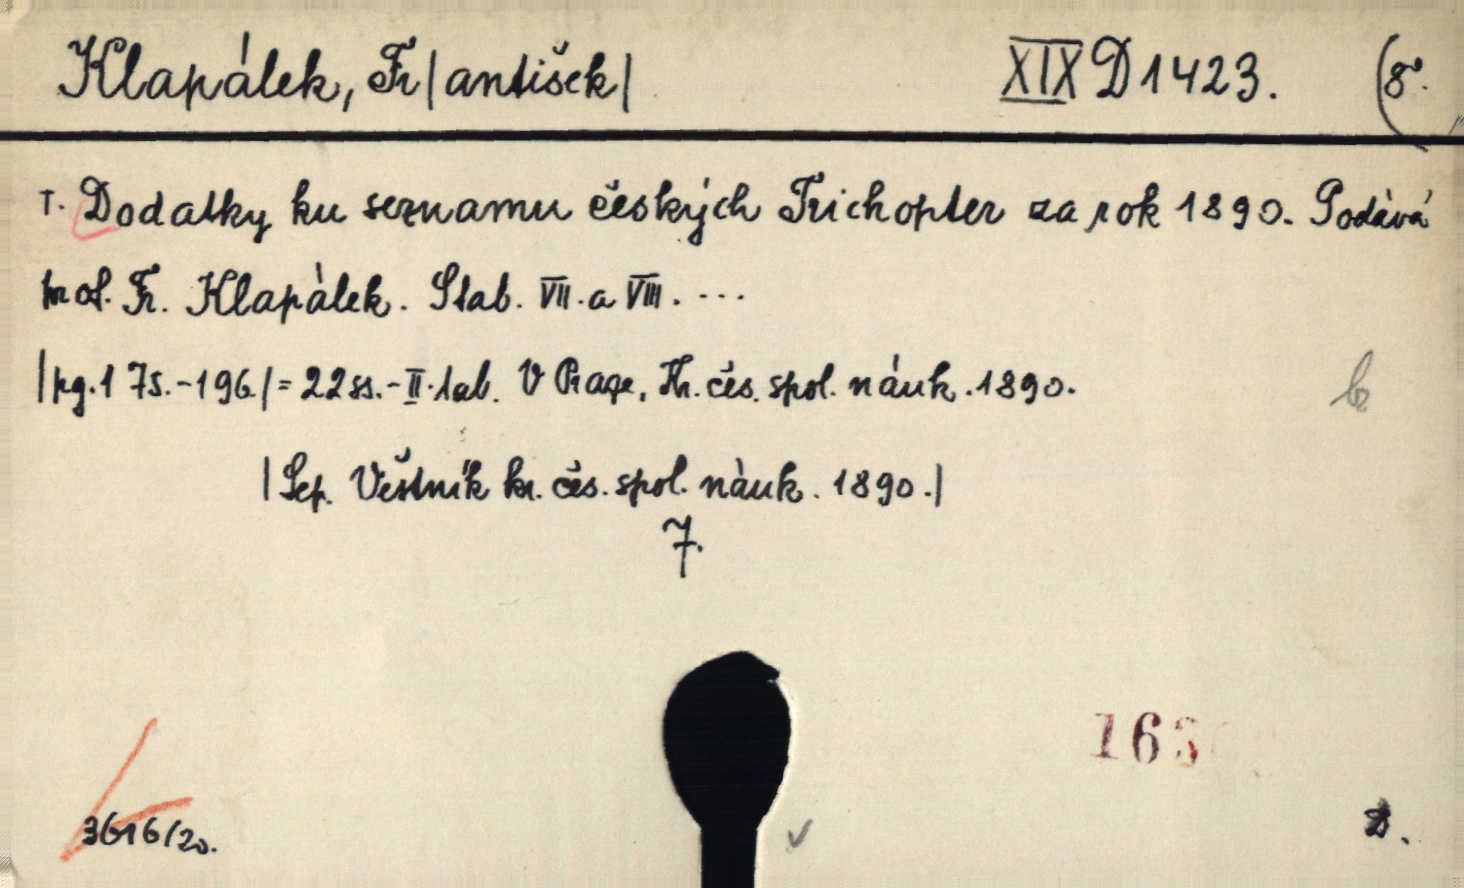 Klapálek, Fr|antišek| XIX D 1423. (8°.
T. Dodatky ku seznamu českých Trichopter za rok 1890. Podává
prof. Fr. Klapálek. S tab. VII. a VIII. ...
|pg. 175.-196.| = 22 ss.-II. tab. V Praze, Kr. čes. spol. náuk. 1890.
|Sep. Věstník kr. čes. spol. náuk. 1890.|
7.
163
3616/20.